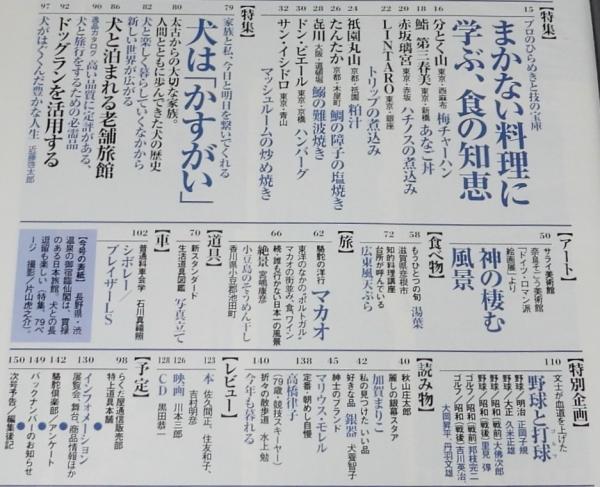 【特集】
15 プロのひらめきと技の宝庫
まかない料理に
学ぶ、食の知恵
16 分とく山 東京・西麻布 梅チャーハン
18 鮨 第三春美 東京・新橋 あなご丼
20 赤坂璃宮 東京・赤坂 ハチノスの煮込み
22 LINTARO 東京・銀座
トリップの煮込み
24 祇園丸山 京都・祇園 粕汁
26 たんたか 京都・木屋町 鯛の障子の塩焼き
28 㐂川 大阪・道頓堀 鰯の難波焼き
30 ドン・ピエール 東京・京橋 ハンバーグ
32 サン・イシドロ 東京・青山
マッシュルームの炒め焼き
【特集】
79 家族と私、今日と明日を繋いでくれる
犬は「かすがい」
80 太古からの大切な家族。
人間とともに歩んできた犬の歴史
82 犬と楽しく暮らしていくなかから
新しい世界が広がる
86 犬と泊まれる老舗旅館
90 逸品カタログ 高い品質に定評がある、
犬と旅行をするための必需品
92 ドッグランを活用する
97 犬がはぐくんだ豊かな人生 近藤啓太郎
【アート】
50 サライ美術館
奈良そごう美術館
「ドイツ・ロマン派
絵画展」より
神の棲む
風景
【食べ物】
58 もうひとつの旬 湯葉
滋賀県彦根市
72 知的料理講座
台所が呼んでいる
広東風天ぷら
【旅】
62 駱駝の洋行 マカオ
東洋のなかの〝ポルトガル〟
マカオの街並み、食、ワイン
66 続・誰も行かない日本一の風景
絶景 宮嶋康彦
小豆島のそうめん干し
香川県小豆郡池田町
【道具】
70 新スタンダード 写真立て
生活道具図鑑
【車】
102 普通列車会学 石川真禧照
シボレー/
ブレイザーLS
【今号の表紙】長野県・渋
温泉の御宿臨仙閣は、貫禄
のある日本旅館。犬との長
逗留も楽しい(特集 79ペ
ージ 撮影/片山虎之介)
【特別企画】
110 文士が血道を上げた
野球と打球
ゴルフ
野球/明治 正岡子規
野球/大正 久米正雄
野球/昭和(戦前) 大佛次郎
野球/昭和(戦後) 里見弴
ゴルフ/昭和(戦前) 邦枝完二
ゴルフ/昭和(戦後) 吉川英治、
大岡昇平、丹羽文雄
【読み物】
40 秋山庄太郎
麗しの銀幕スタア
加賀まりこ
42 私の見つけた いい品
好きな品 銀器 犬養智子
45 紳士のブランド
マリオス・モレル
138 定番・朝めし自慢
高橋律子
(79歳・競技スキーヤー)
140 折々の散歩道 水上勉
今年も暮れる
【レビュー】
123 本 佐久間正、住友和子、
吉村明彦
126 映画 川本三郎
128 CD 黒田恭一
【予定】
98 らくだ屋通信販売部
特上道具本舗
130 インフォメーション
展覧会、舞台、商品情報ほか
142 駱駝倶楽部/アンケート
149 バックナンバーのお知らせ
150 次号予告/編集後記